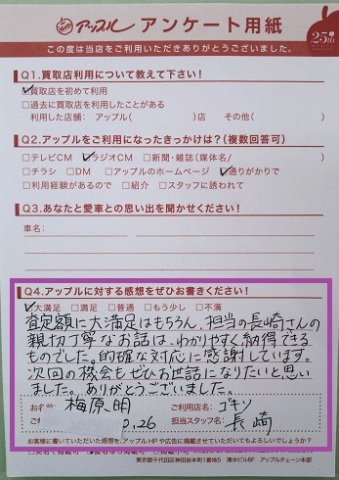 アップル アンケート用紙
25th
この度は当店をご利用いただきありがとうございました。
Q1.買取店利用について教えて下さい!
☑買取店を初めて利用
□過去に買取店を利用したことがある
利用した店舗: アップル( )店 その他( )
Q2.アップルをご利用になったきっかけは?(複数回答可)
□テレビCM ☑ラジオCM □新聞・雑誌(媒体名/ )
□チラシ □DM □アップルのホームページ ☑通りがかりで
□利用経験があるので □紹介 □スタッフに誘われて
Q3.あなたと愛車との思い出を聞かせください!
車名:
Q4.アップルに対する感想をぜひお書きください!
☑大満足 □満足 □普通 □もう少し □不満
査定額に大満足はもちろん、担当の長崎さんの
親切丁寧なお話は、わかりやすく納得できる
ものでした。的確な対応に感謝しています。
次回の機会もぜひお世話になりたいと思い
ました。ありがとうございました。
梅原 明 ご利用店名: ゴキソ
.26 担当スタッフ名: 長崎
お客様に書いていただいた感想を、アップルHPや広告に掲載させていただいてもよろしいでしょうか?
東京都千代田区神田松永町 アップルチェーン本部